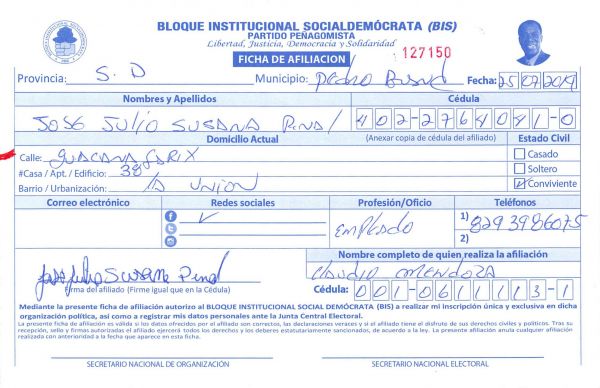 BLOQUE INSTITUCIONAL SOCIALDEMÓCRATA (BIS)
PARTIDO PEÑAGOMISTA
Libertad, Justicia, Democracia y Solidaridad
FICHA DE AFILIACION
127150
Provincia: S. D Municipio: Pedro Brand Fecha: 25/07/2019
Nombres y Apellidos Cédula
JOSE JULIO SUSANA Pina/ 402-2764041-0
Domicilio Actual (Anexar copia de cédula del afiliado) Estado Civil
Calle: Casado
#Casa / Apt. / Edificio: 38 Soltero
Barrio / Urbanización: la UNION Conviviente
Correo electrónico Redes sociales Profesión/Oficio Teléfonos
EmPleado 1) 8293986075
2)
Nombre completo de quien realiza la afiliación
Claudio MENDOZA
Jose Julio Susana Pina/
Firma del afiliado (Firme igual que en la Cédula) Cédula: 001-0611113-1
Mediante la presente ficha de afiliación autorizo al BLOQUE INSTITUCIONAL SOCIAL DEMÓCRATA (BIS) a realizar mi inscripción única y exclusiva en dicha
organización política, así como a registrar mis datos personales ante la Junta Central Electoral.
La presente ficha de afiliación es válida si los datos ofrecidos por el afiliado son correctos, las declaraciones veraces y si el afiliado tiene el disfrute de sus derechos civiles y políticos. Tras su
recepción, sello y firmas autorizadas el afiliado ejercerá todos los derechos y los deberes estatutariamente sancionados, de acuerdo a la ley. La presente afiliación anula cualquier afiliación
realizada con anterioridad a la fecha que aparece en esta ficha.
SECRETARIO NACIONAL DE ORGANIZACIÓN SECRETARIO NACIONAL ELECTORAL